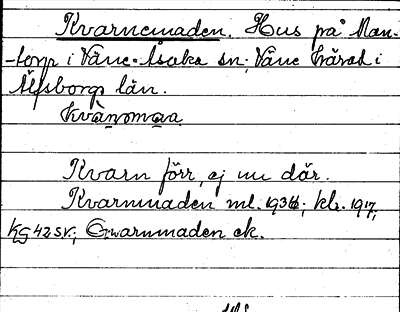 Kvarnemaden. Hus på Man-
-torp i Väne-Åsaka sn; Väne härad i
Älfsborgs län.
Kvarn förr, ej nu där.
Kvarnmaden ml. 1936; klr. 1917;
KG 42 SV.; Qwarnmaden ek.